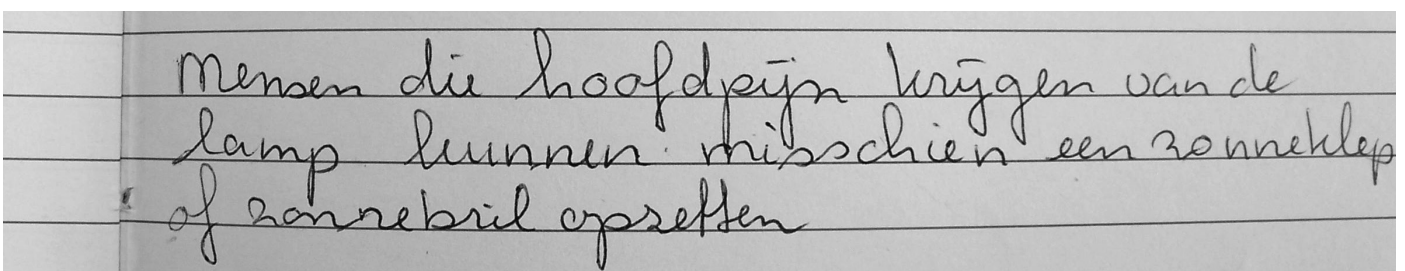 Mensen die hoofdpijn krijgen van de
lamp kunnen misschien een zonneklep
of zonnebril opzetten